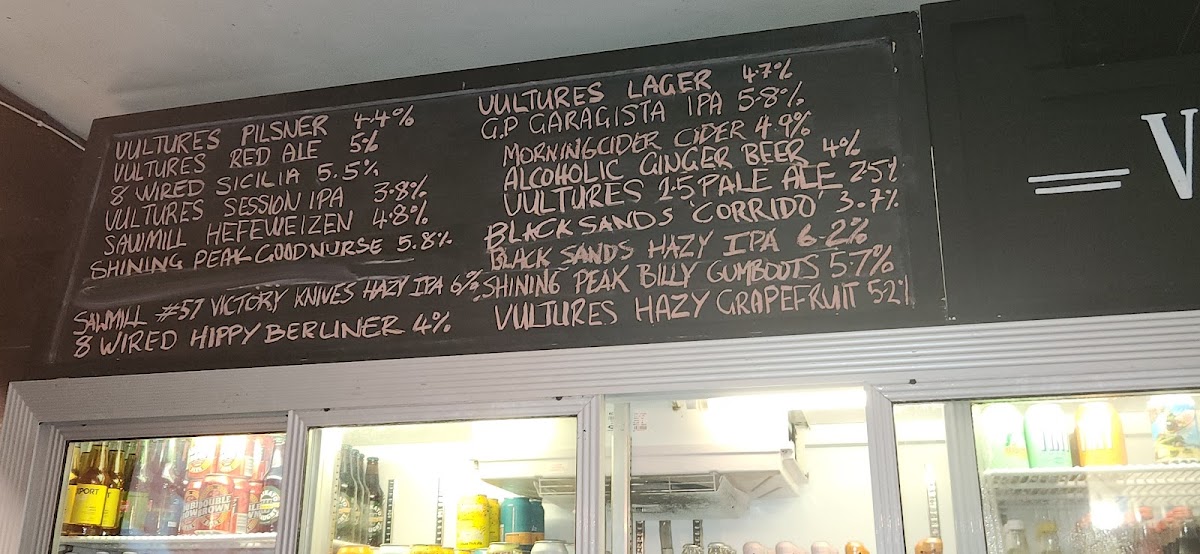 VULTURES PILSNER 4.4%
VULTURES RED ALE 5%
8 WIRED SICILIA 5.5%
VULTURES SESSION IPA 3.8%
SAWMILL HEFEWEIZEN 4.8%
SHINING PEAK GOODNURSE 5.8%
SAWMILL #57 VICTORY KNIVES HAZY IPA 6%
8 WIRED HIPPY BERLINER 4%
VULTURES LAGER 4.7%
G.P GARAGISTA IPA 5.8%
MORNINGCIDER CIDER 4.9%
ALCOHOLIC GINGER BEER 4%
VULTURES 2.5 PALE ALE 2.5%
BLACKSANDS 'CORRIDO' 3.7%
BLACK SANDS HAZY IPA 6.2%
SHINING PEAK BILLY GUMBOOTS 5.7%
VULTURES HAZY GRAPEFRUIT 5.2%
V
PORT
DOUBLE
BROWN